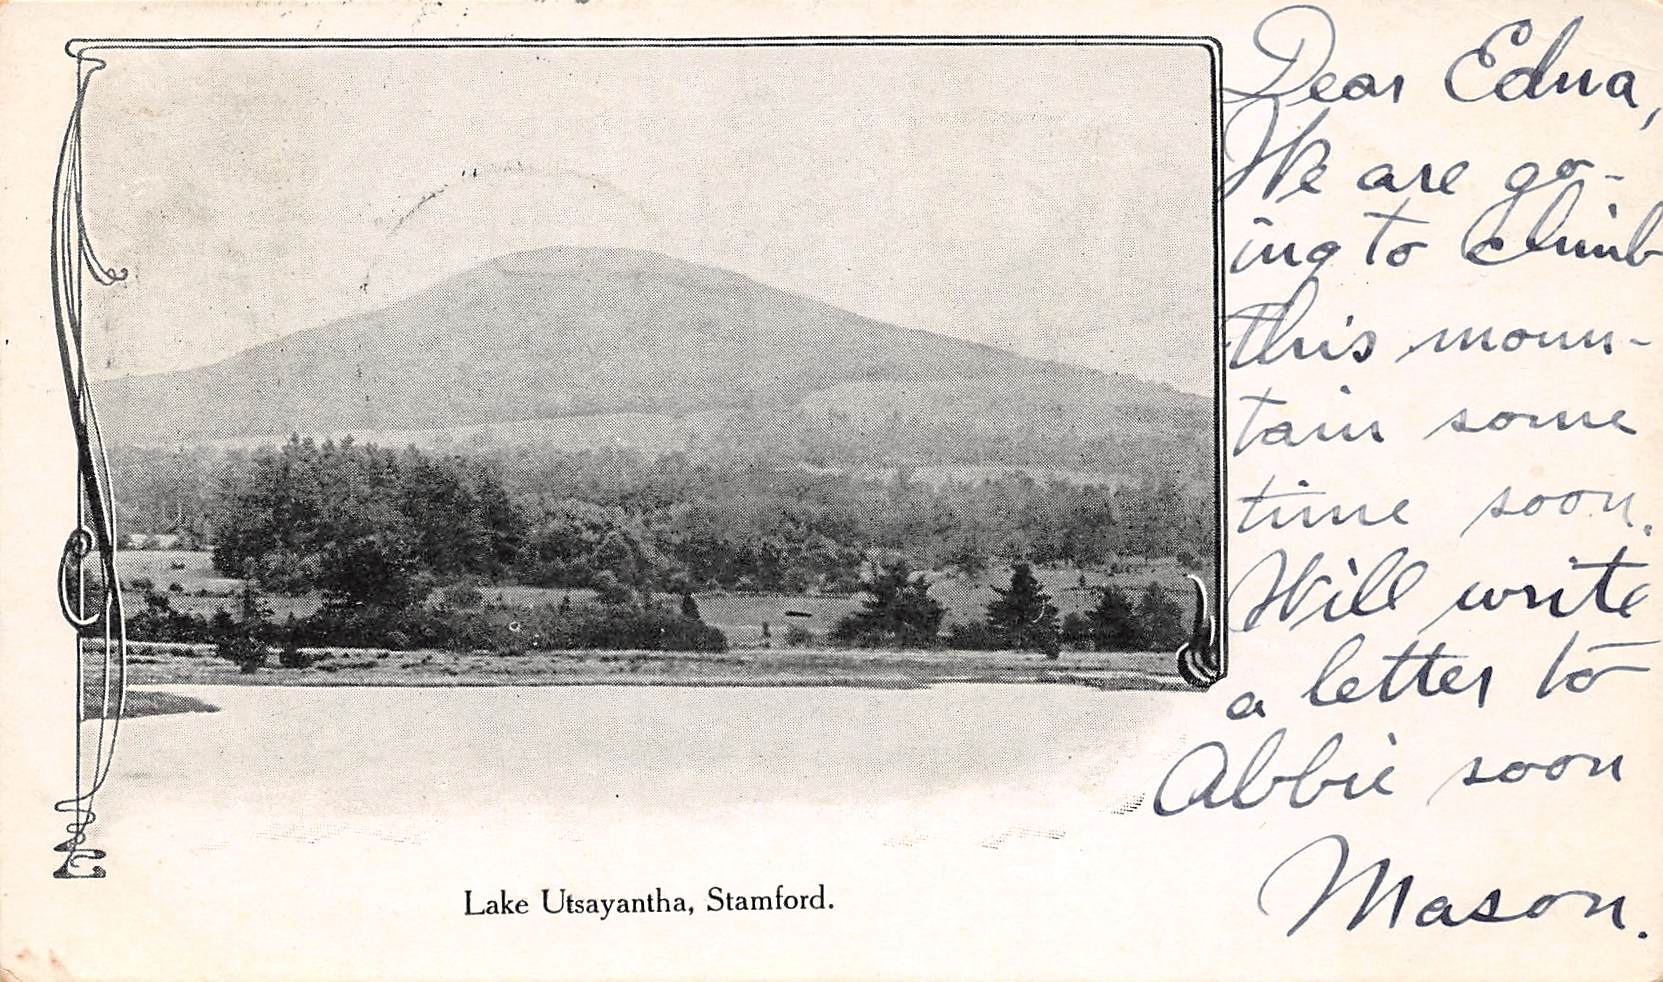 Dear Edna,
We are go-
ing to climb
this moun-
tain some
time soon.
Will write
a letter to
Abbie soon
Mason.
Lake Utsayantha, Stamford.